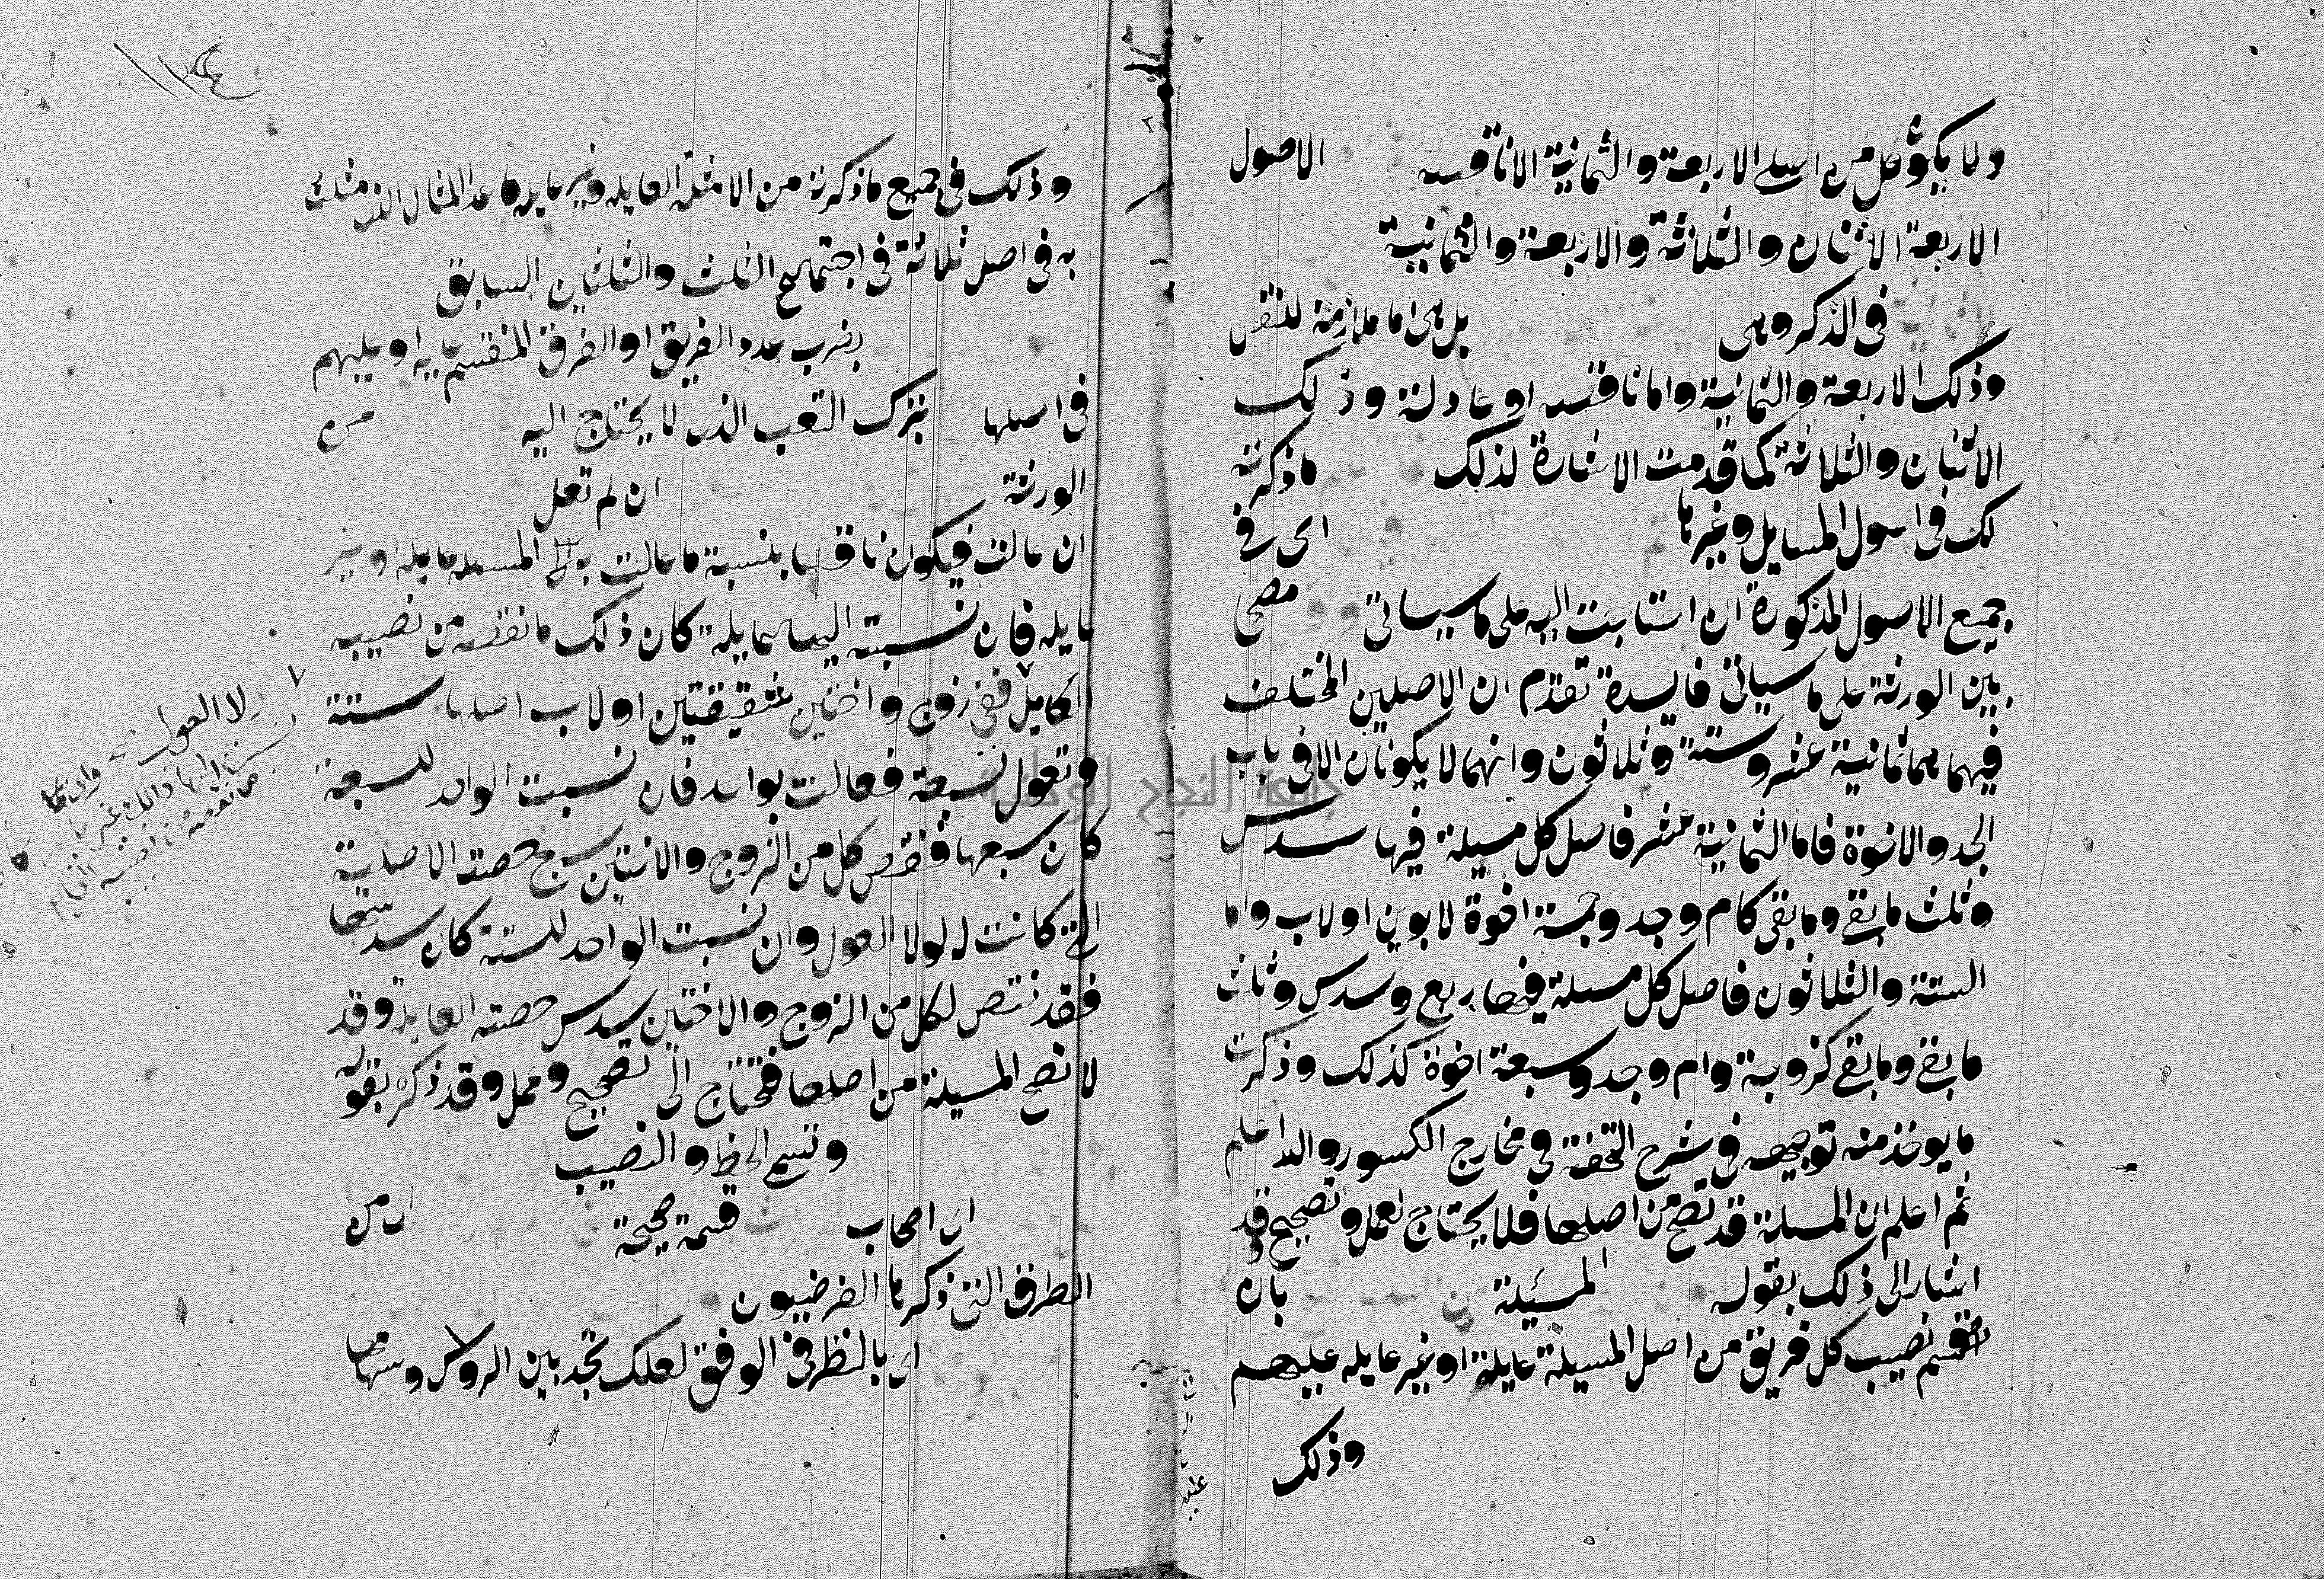 ولا يكون كل من اصلي الاربعة والثمانية الا ناقصا الاصول
الاربعة الاثنان والثلاثة والاربعة والثمانية
في الذكر وهي بل هي اما ملازمة للنقص
وذلك الاربعة والثمانية واما ناقصه او عادلة وذلك
الاثنان والثلاثة كما قدمت الاشارة لذلك ما ذكرته
لك في اصول المسايل وغيرها اى في
جميع الاصول المذكورة ان احتاجت اليه على ما سياتي مصححا
بين الورثة على ما سياتي فايدة تقدم ان الاصلين المختلف
فيهما هما ثمانية عشر وستة وثلاثون وانهما لا يكونان الا في باب
الجد والاخوة فاما الثمانية عشر فاصل كل مسيلة فيها سدس
وثلث ما بقي وما بقي كام وجد وخمسة اخوة لابوين او لاب واما
الستة والثلاثون فاصل كل مسيلة فيها ربع وسدس وثلث
ما بقي وما بقي كزوجة وام وجد وسبعة اخوة كذلك وذكرت
ما يوخذ منه توجيهه في شرح التحفة في مخارج الكسور والله اعلم
ثم اعلم ان المسيلة قد تصح من اصلها فلا يحتاج لعمل وتصحيح وقد
اشار الى ذلك بقوله المسئلة بان
انقسم نصيب كل فريق من اصل المسيلة عايلة او غير عايله عليهم
وذلك
وذلك في جميع ما ذكرته من الامثلة العايله وغير عايله ما عدا المثال الذى مثلت
به في اصل ثلاثة في اجتماع الثلث والثلثين السابق
بضرب عدد الفريق او الفرق المنقسم عليه او عليهم
في اصلها بترك التعب الذى لا يحتاج اليه من
الورثة ان لم تعل
ان عالت فيكون ناقصا بنسبة ما عالت به المسيله عايلة وغير
عايله فان نسبته اليها عايلة كان ذلك ما نقصه من نصيبه
الكامل ففي زوج واختين شقيقتين او لاب اصلها ستة
وتعول لسبعة فعالت بواحد فان نسبت الواحد للسبعة
كان سبعها فنقص كل من الزوج والاختين سبع حصته الاصلية
التي كانت له لولا العول وان نسبت الواحد للستة كان سدسها
فقد نقص لكل من الزوج والاختين سدس حصته العايلة وقد
لا تصح المسيلة من اصلها فتحتاج الى تصحيح وعمل وقد ذكره بقوله
وتسع الحظ والنصيب
اى اصحاب قسمة صحيحة اى من
الطرق التي ذكرها الفرضيون
اى بالنظر في الوفق لعلك تجد بين الروس وسهامها
لولا العول